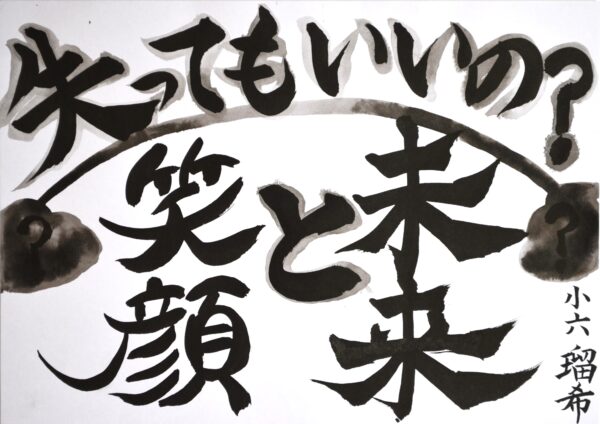 失ってもいいの?
未来
と
笑顔
?
?
小六 瑠希